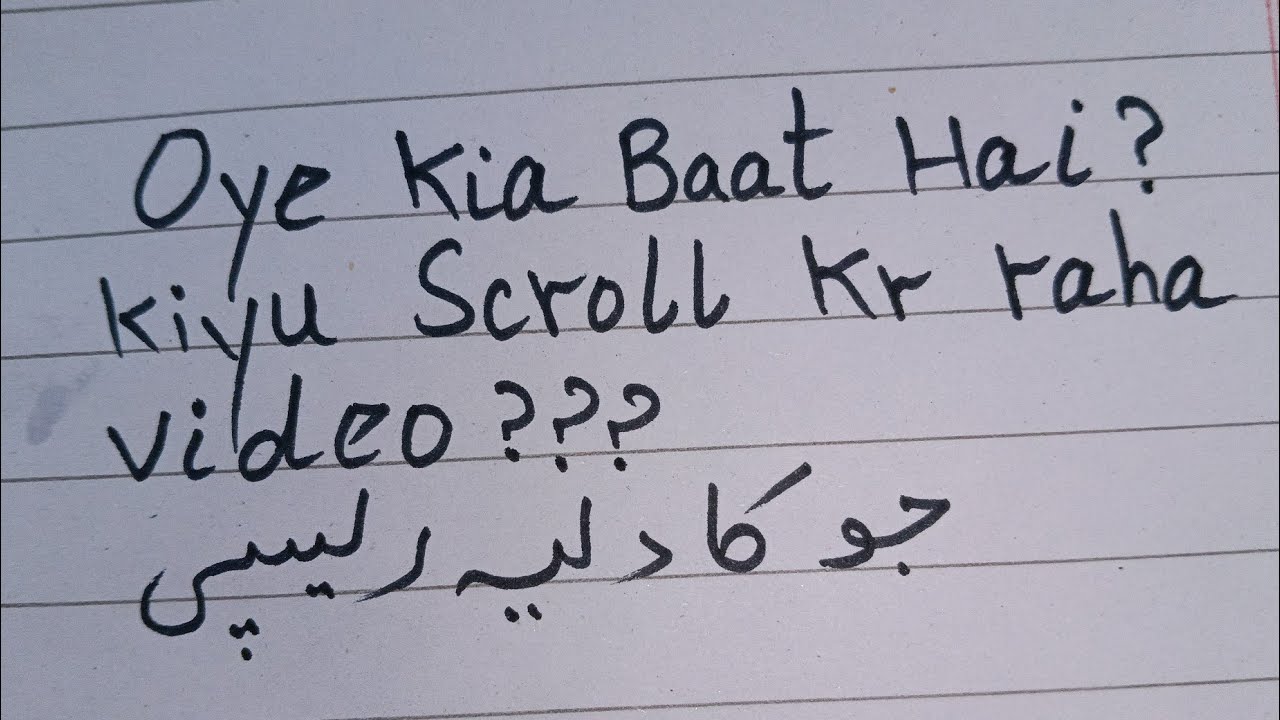 Oye Kia Baat Hai?
kiyu Scroll Kr raha
video???
جو کا دلیہ رلیسپی